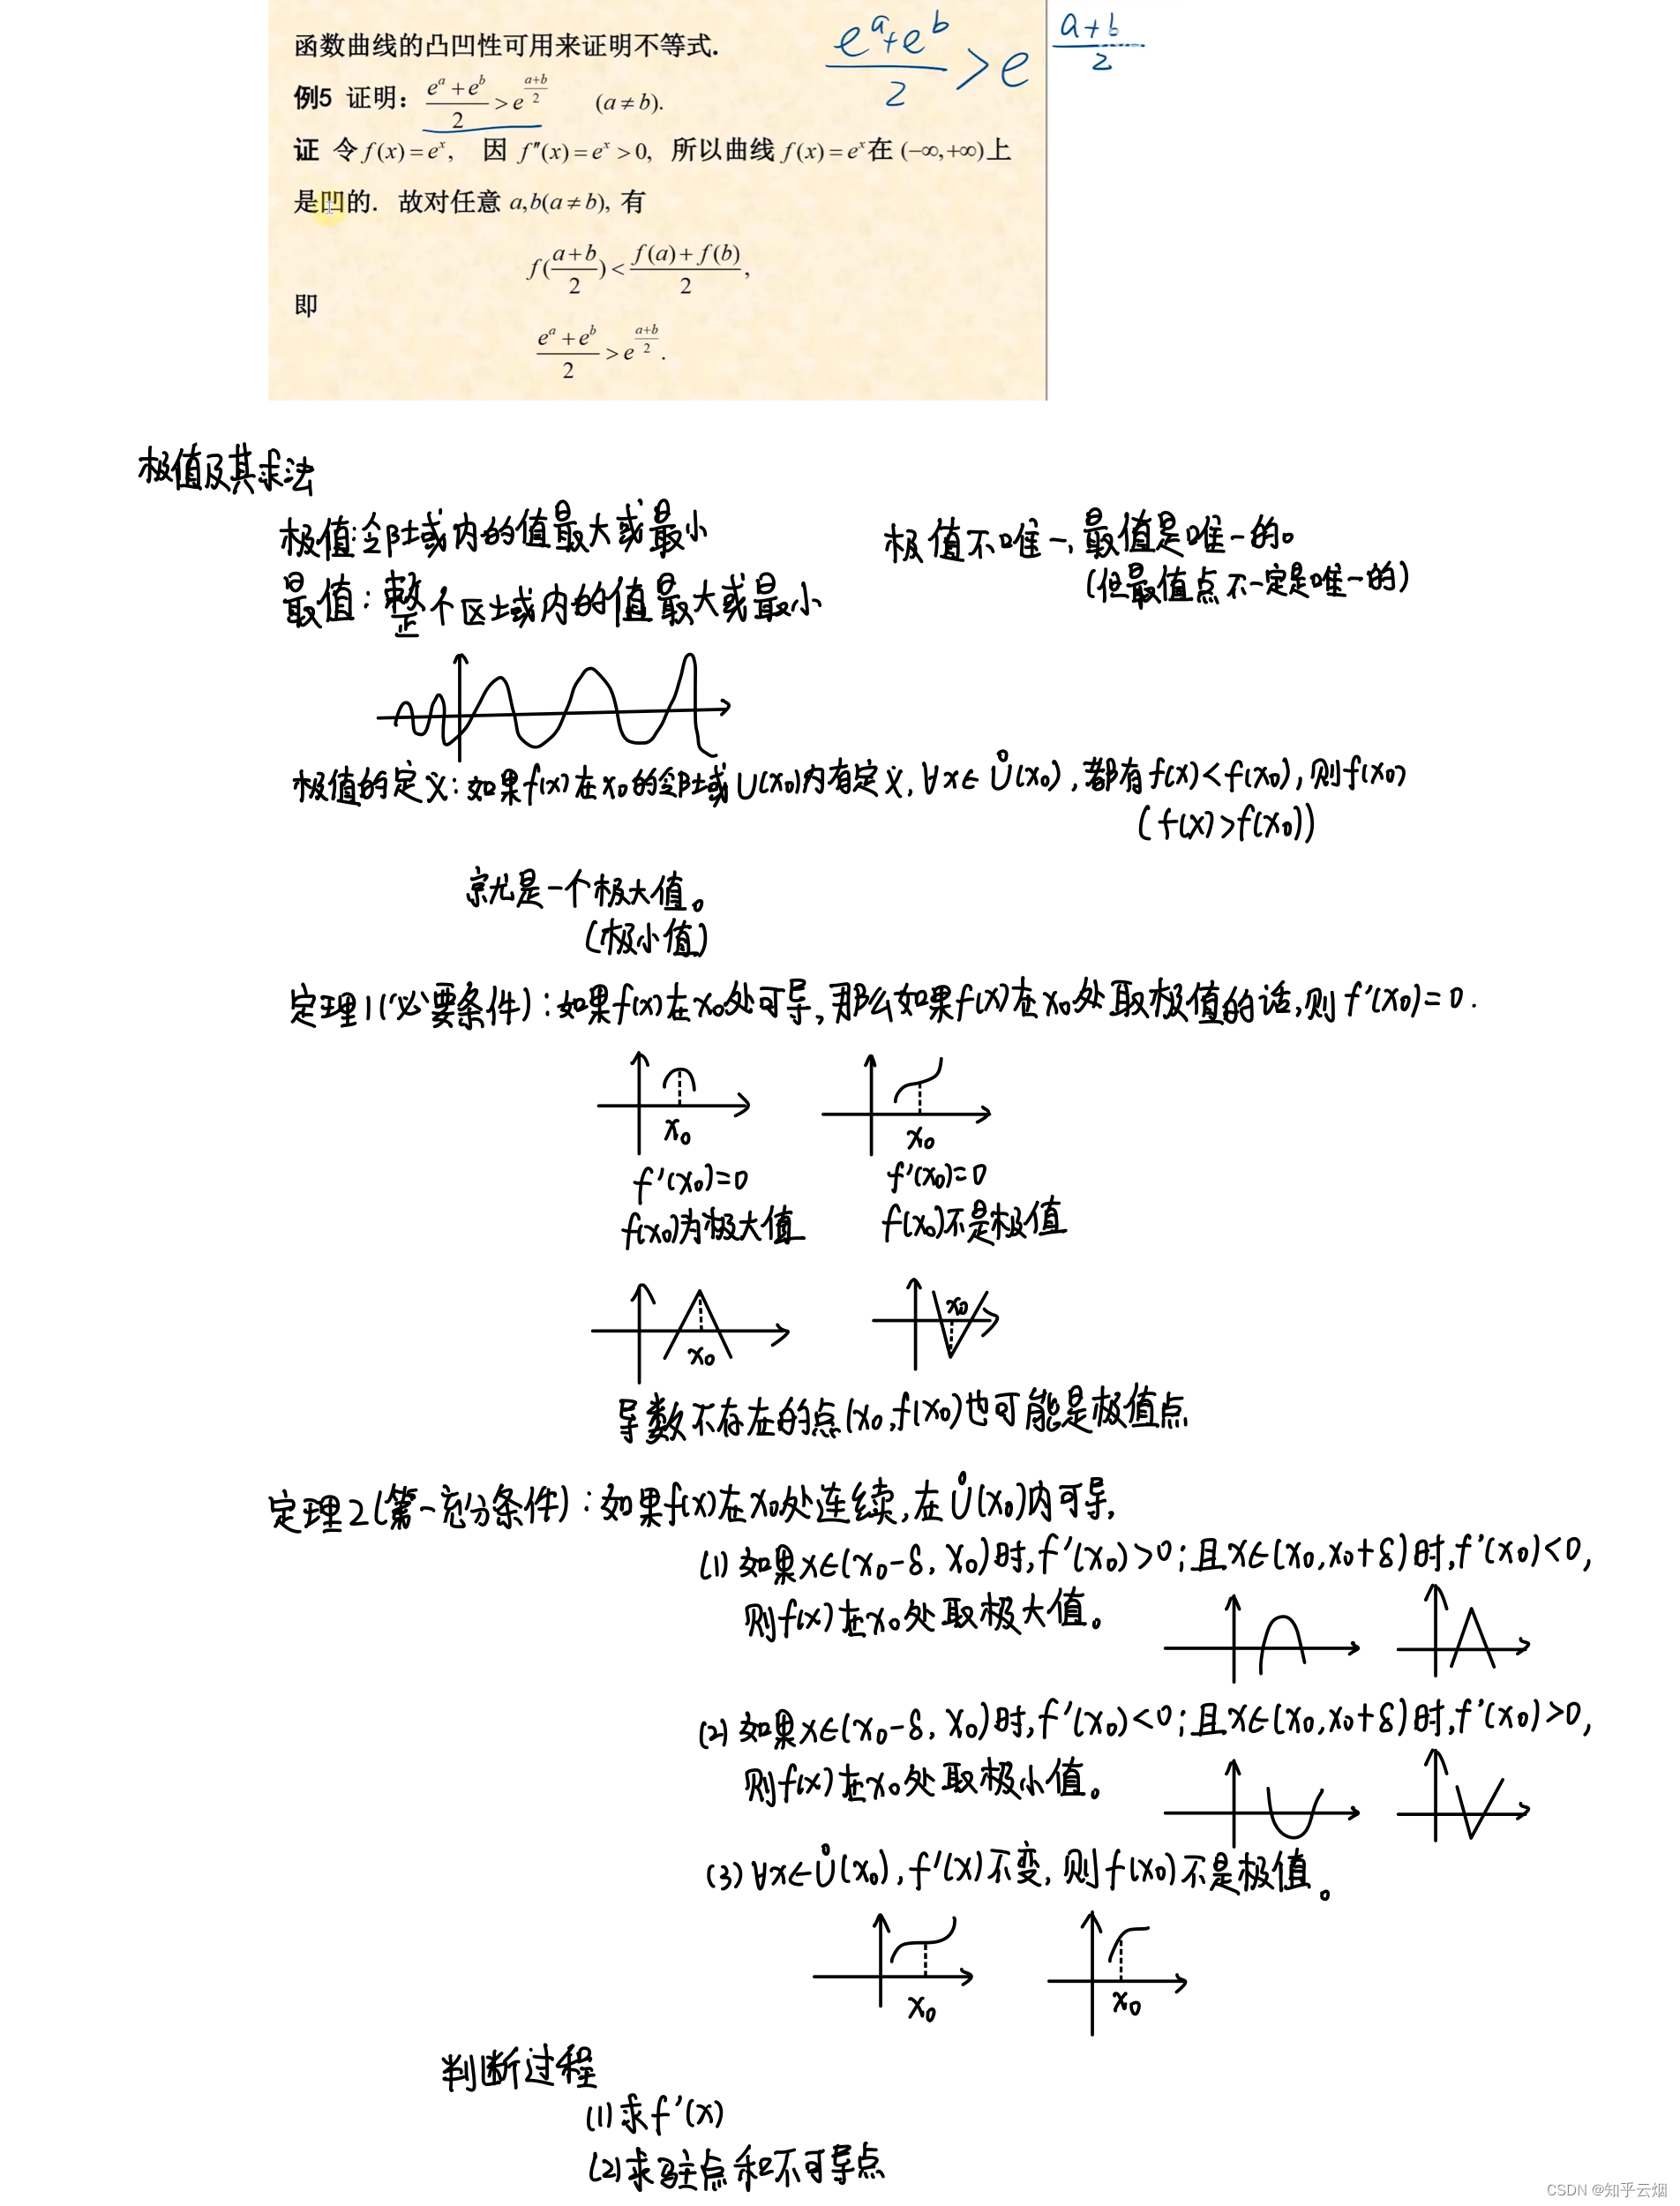 函数曲线的凸凹性可用来证明不等式.
(e^a+e^b)/2 > e^((a+b)/2)
例5 证明: (e^a+e^b)/2 > e^((a+b)/2) (a≠b).
证 令 f(x)=e^x, 因 f″(x)=e^x>0, 所以曲线 f(x)=e^x 在 (-∞,+∞)上
是凹的. 故对任意 a,b(a≠b), 有
f((a+b)/2) < (f(a)+f(b))/2,
即
(e^a+e^b)/2 > e^((a+b)/2).
极值及其求法
极值:邻域内的值最大或最小
极值不唯一,最值是唯一的。
(但最值点不一定是唯一的)
最值:整个区域内的值最大或最小
极值的定义:如果f(x)在x₀的邻域U(x₀)内有定义,∀x∈Ů(x₀),都有f(x)<f(x₀),则f(x₀)
(f(x)>f(x₀))
就是一个极大值。
(极小值)
定理1(必要条件):如果f(x)在x₀处可导,那么如果f(x)在x₀处取极值的话,则f'(x₀)=0.
x₀ x₀
f'(x₀)=0 f'(x₀)=0
f(x₀)为极大值 f(x₀)不是极值
x₀ x₀
导数不存在的点(x₀,f(x₀))也可能是极值点
定理2(第一充分条件):如果f(x)在x₀处连续,在Ů(x₀)内可导,
(1)如果x∈(x₀-δ,x₀)时,f'(x₀)>0;且x∈(x₀,x₀+δ)时,f'(x₀)<0,
则f(x)在x₀处取极大值。
(2)如果x∈(x₀-δ,x₀)时,f'(x₀)<0;且x∈(x₀,x₀+δ)时,f'(x₀)>0,
则f(x)在x₀处取极小值。
(3)∀x∈Ů(x₀),f'(x)不变,则f(x₀)不是极值。
x₀ x₀
判断过程
(1)求f'(x)
(2)求驻点和不可导点
CSDN @知乎云烟